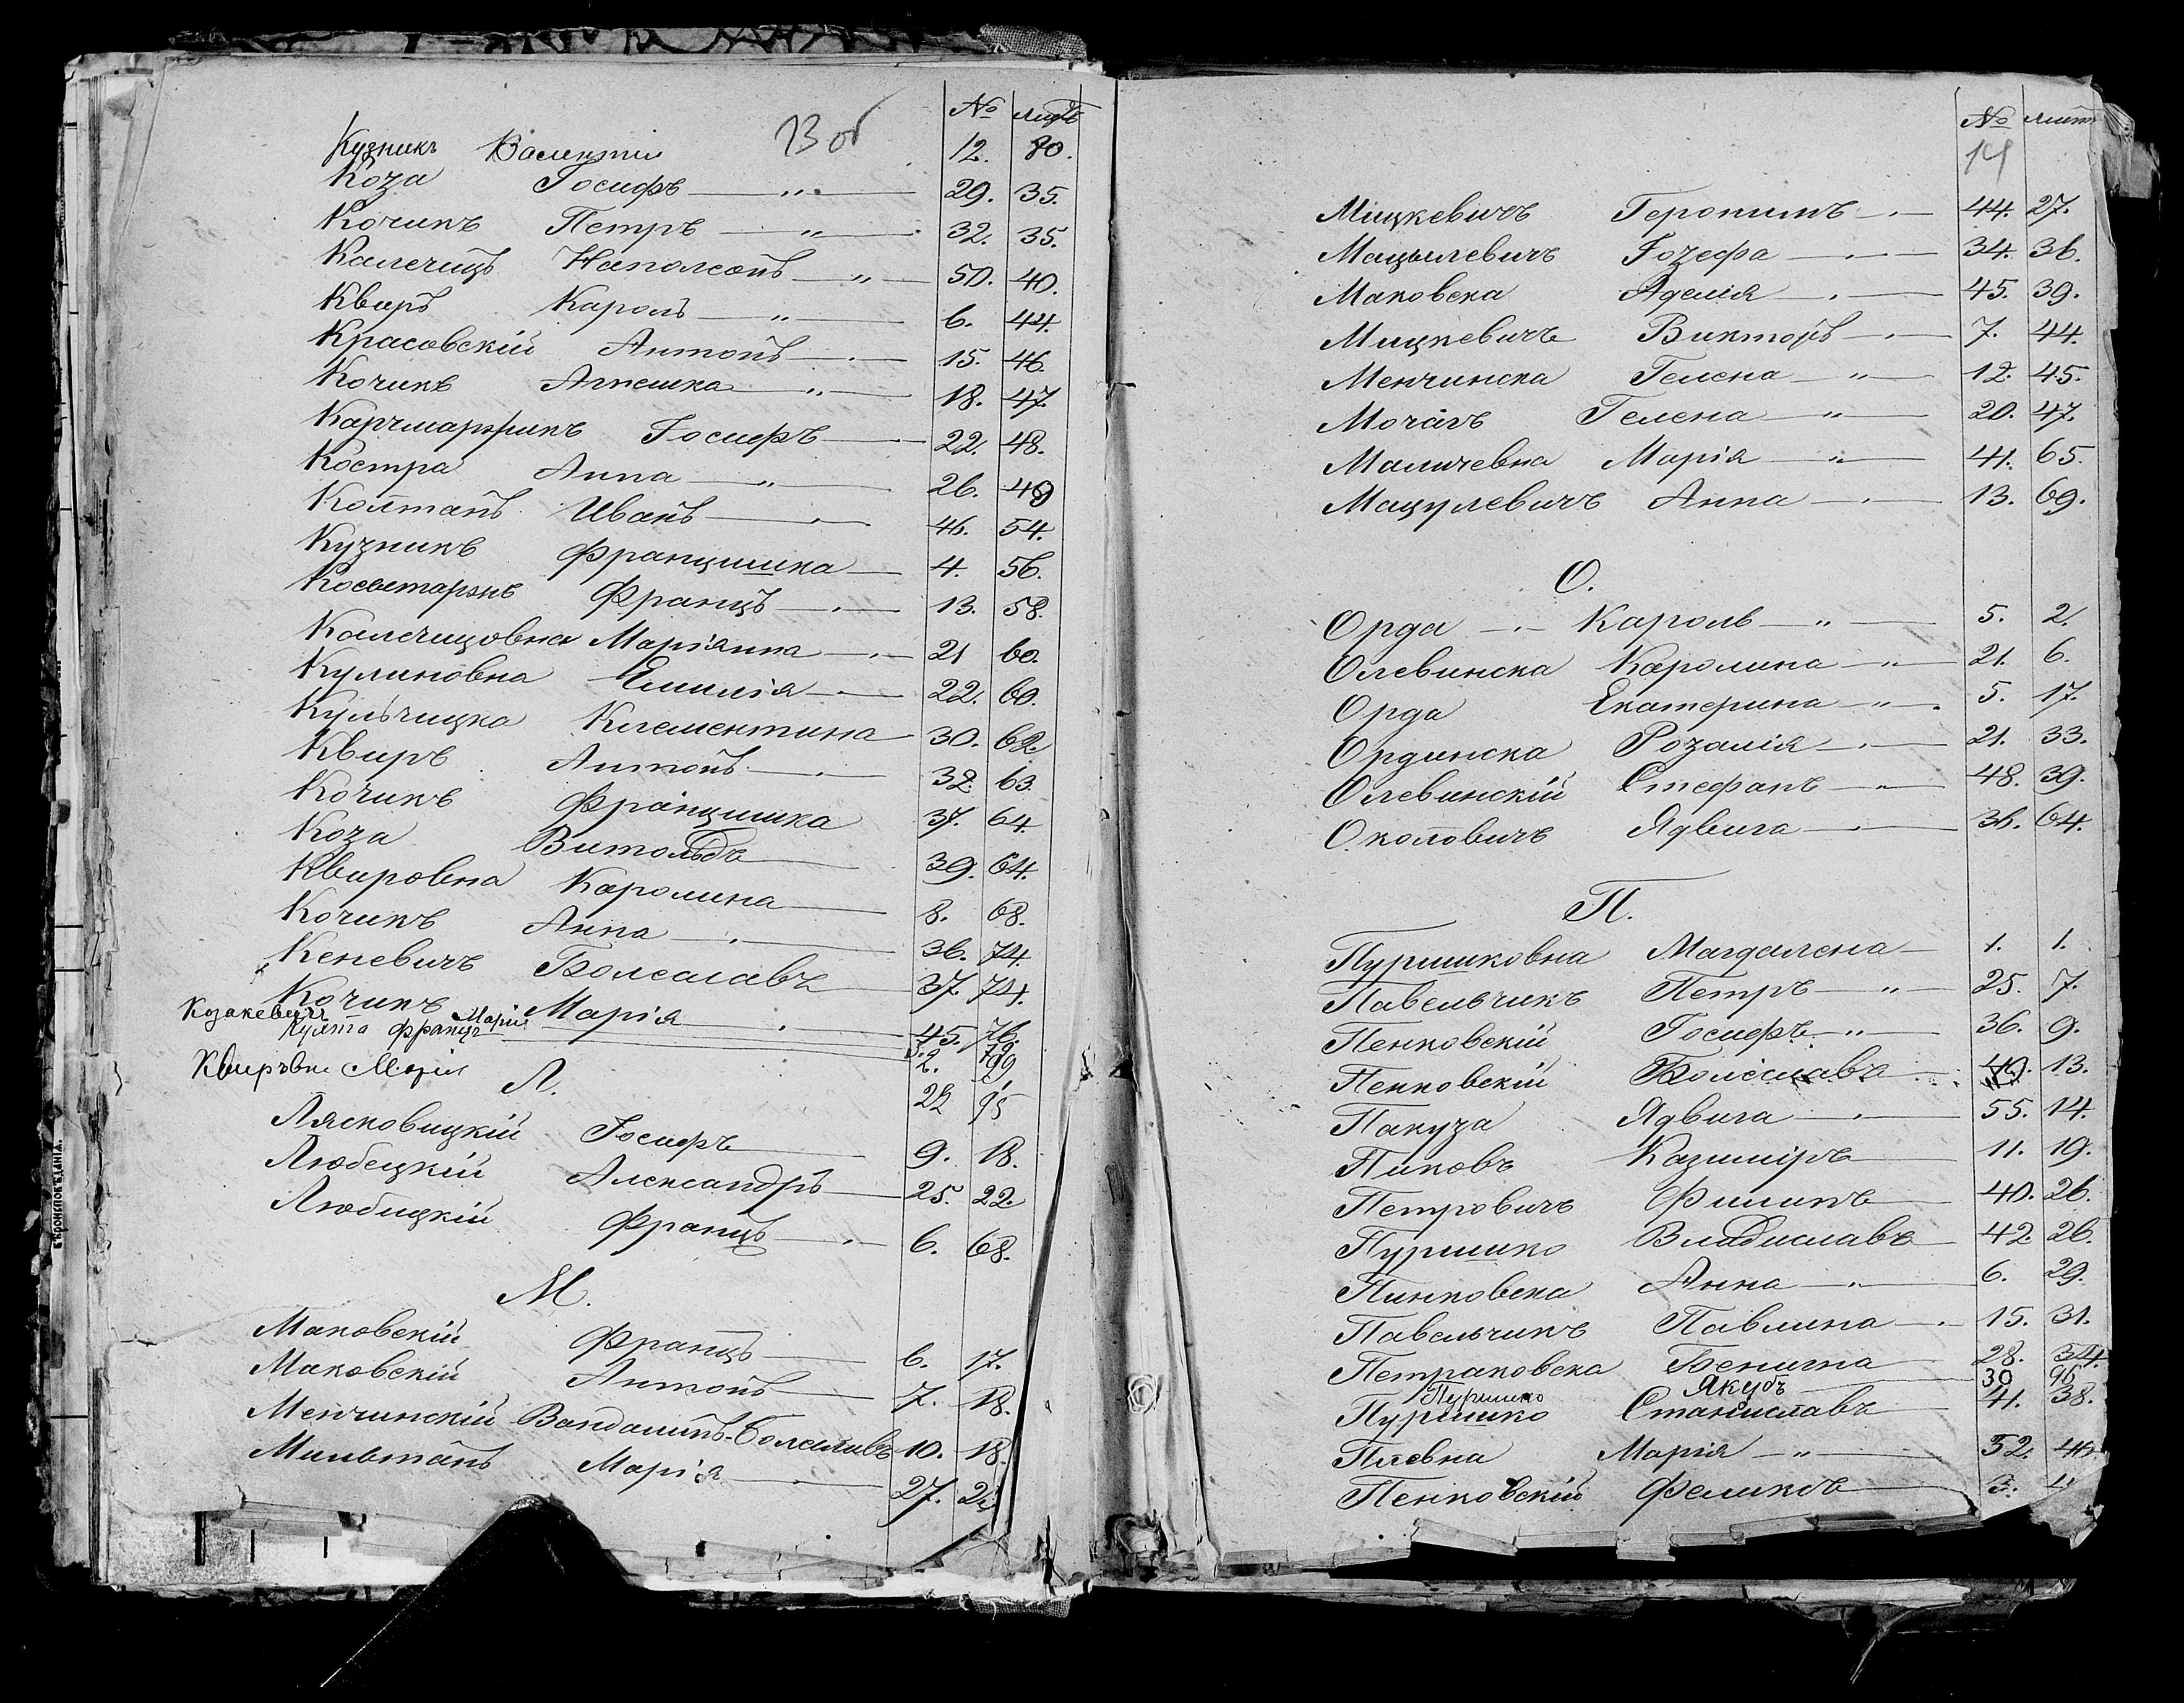 13 об
№ листъ
Кузникъ Валентій 12. 80.
Коза Іосифъ — „ — 29. 35.
Кочикъ Петръ — „ — 32. 35.
Калечицъ Наполеонъ — „ — 50. 40.
Квиръ Кароль — „ — 6. 44.
Красовскій Антонъ — 15. 46.
Кочикъ Агнешка — „ — 18. 47.
Карчмаржикъ Іосифъ — 22. 48.
Костра Анна — „ — 26. 49
Колтанъ Иванъ — 46. 54.
Кузникъ Францишка — 4. 56.
Францъ — 13. 58.
Калечицовна Маріянна — 21 60.
Куликовна Емилія — 22. 60.
Кульчицка Клементина — 30. 62.
Квиръ Антонъ — 32. 63.
Кочикъ Францишка 37. 64.
Коза Витольдъ — 39. 64.
Квировна Каролина — 8. 68.
Кочикъ Анна — 36. 74.
Кеневичъ Болеславъ — 37. 74.
Кочикъ Марія — 45. 76.
Козакевичъ Марія 5. 79
Францъ 2. 99
Квировна Марія 22 95
Л.
Лясковицкій Іосифъ — 9. 18.
Любецкій Александръ — 25. 22.
Любицкій Францъ — 6. 68.
М.
Маковскій Францъ — 6. 17.
Маковскій Антонъ — 7. 18.
Менчинскій Вандалинъ-Болеславъ 10. 18.
Мильтанъ Марія — 27.
№ лист
14
Міцкевичъ Геронимъ — 44. 27.
Мацылевичъ Іозефа — 34. 36.
Маковска Аделія — 45. 39.
Мицкевичъ Викторъ — 7. 44.
Менчинска Гелена — „ — 12. 45.
Мочагъ Гелена — „ — 20. 47.
Маличевна Марія — „ — 41. 65.
Мацулевичъ Анна — 13. 69.
О.
Орда — Кароль — „ — 5. 2.
Олевинска Каролина — „ — 21. 6.
Орда Екатерина — „ — 5. 17.
Ординска Розалія — 21. 33.
Олевинскій Стефанъ — „ — 48. 39.
Околовичъ Ядвига — 36. 64.
П.
Пуришковна Магдалена — 1. 1.
Павельчикъ Петръ — „ — 25. 7.
Пенковскій Іосифъ — „ — 36. 9.
Пенковскій Болеславъ 49. 13.
Пакуза Ядвига — 55. 14.
Пиковъ Казиміръ — 11. 19.
Петровичъ Филипъ — 40. 26.
Пуришко Владиславъ — 42. 26.
Пинковска Анна — „ — 6. 29.
Павельчикъ Павлина — 15. 31.
Петраковска Бенигна — 28. 34.
Пуришко Якубъ — 30 96
Пуришко Станиславъ — 41. 38.
Плевна Марія — „ — 52. 40.
Пенковскій Феликсъ — 3.